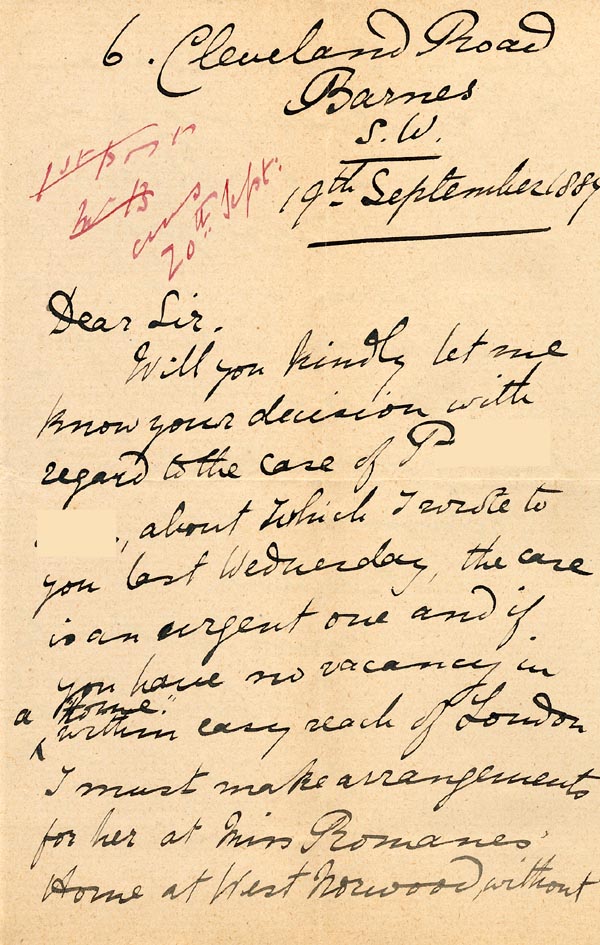 6. Cleveland Road
Barnes
S.W.
19th September 1889
20th Sept.
Dear Sir.
Will you kindly let me
know your decision with
regard to the case of P
, about which I wrote to
you last Wednesday, the case
is an urgent one and if
you have no vacancy in
a "Home"
within easy reach of London
I must make arrangements
for her at Miss Romanes'
Home at West Norwood, without